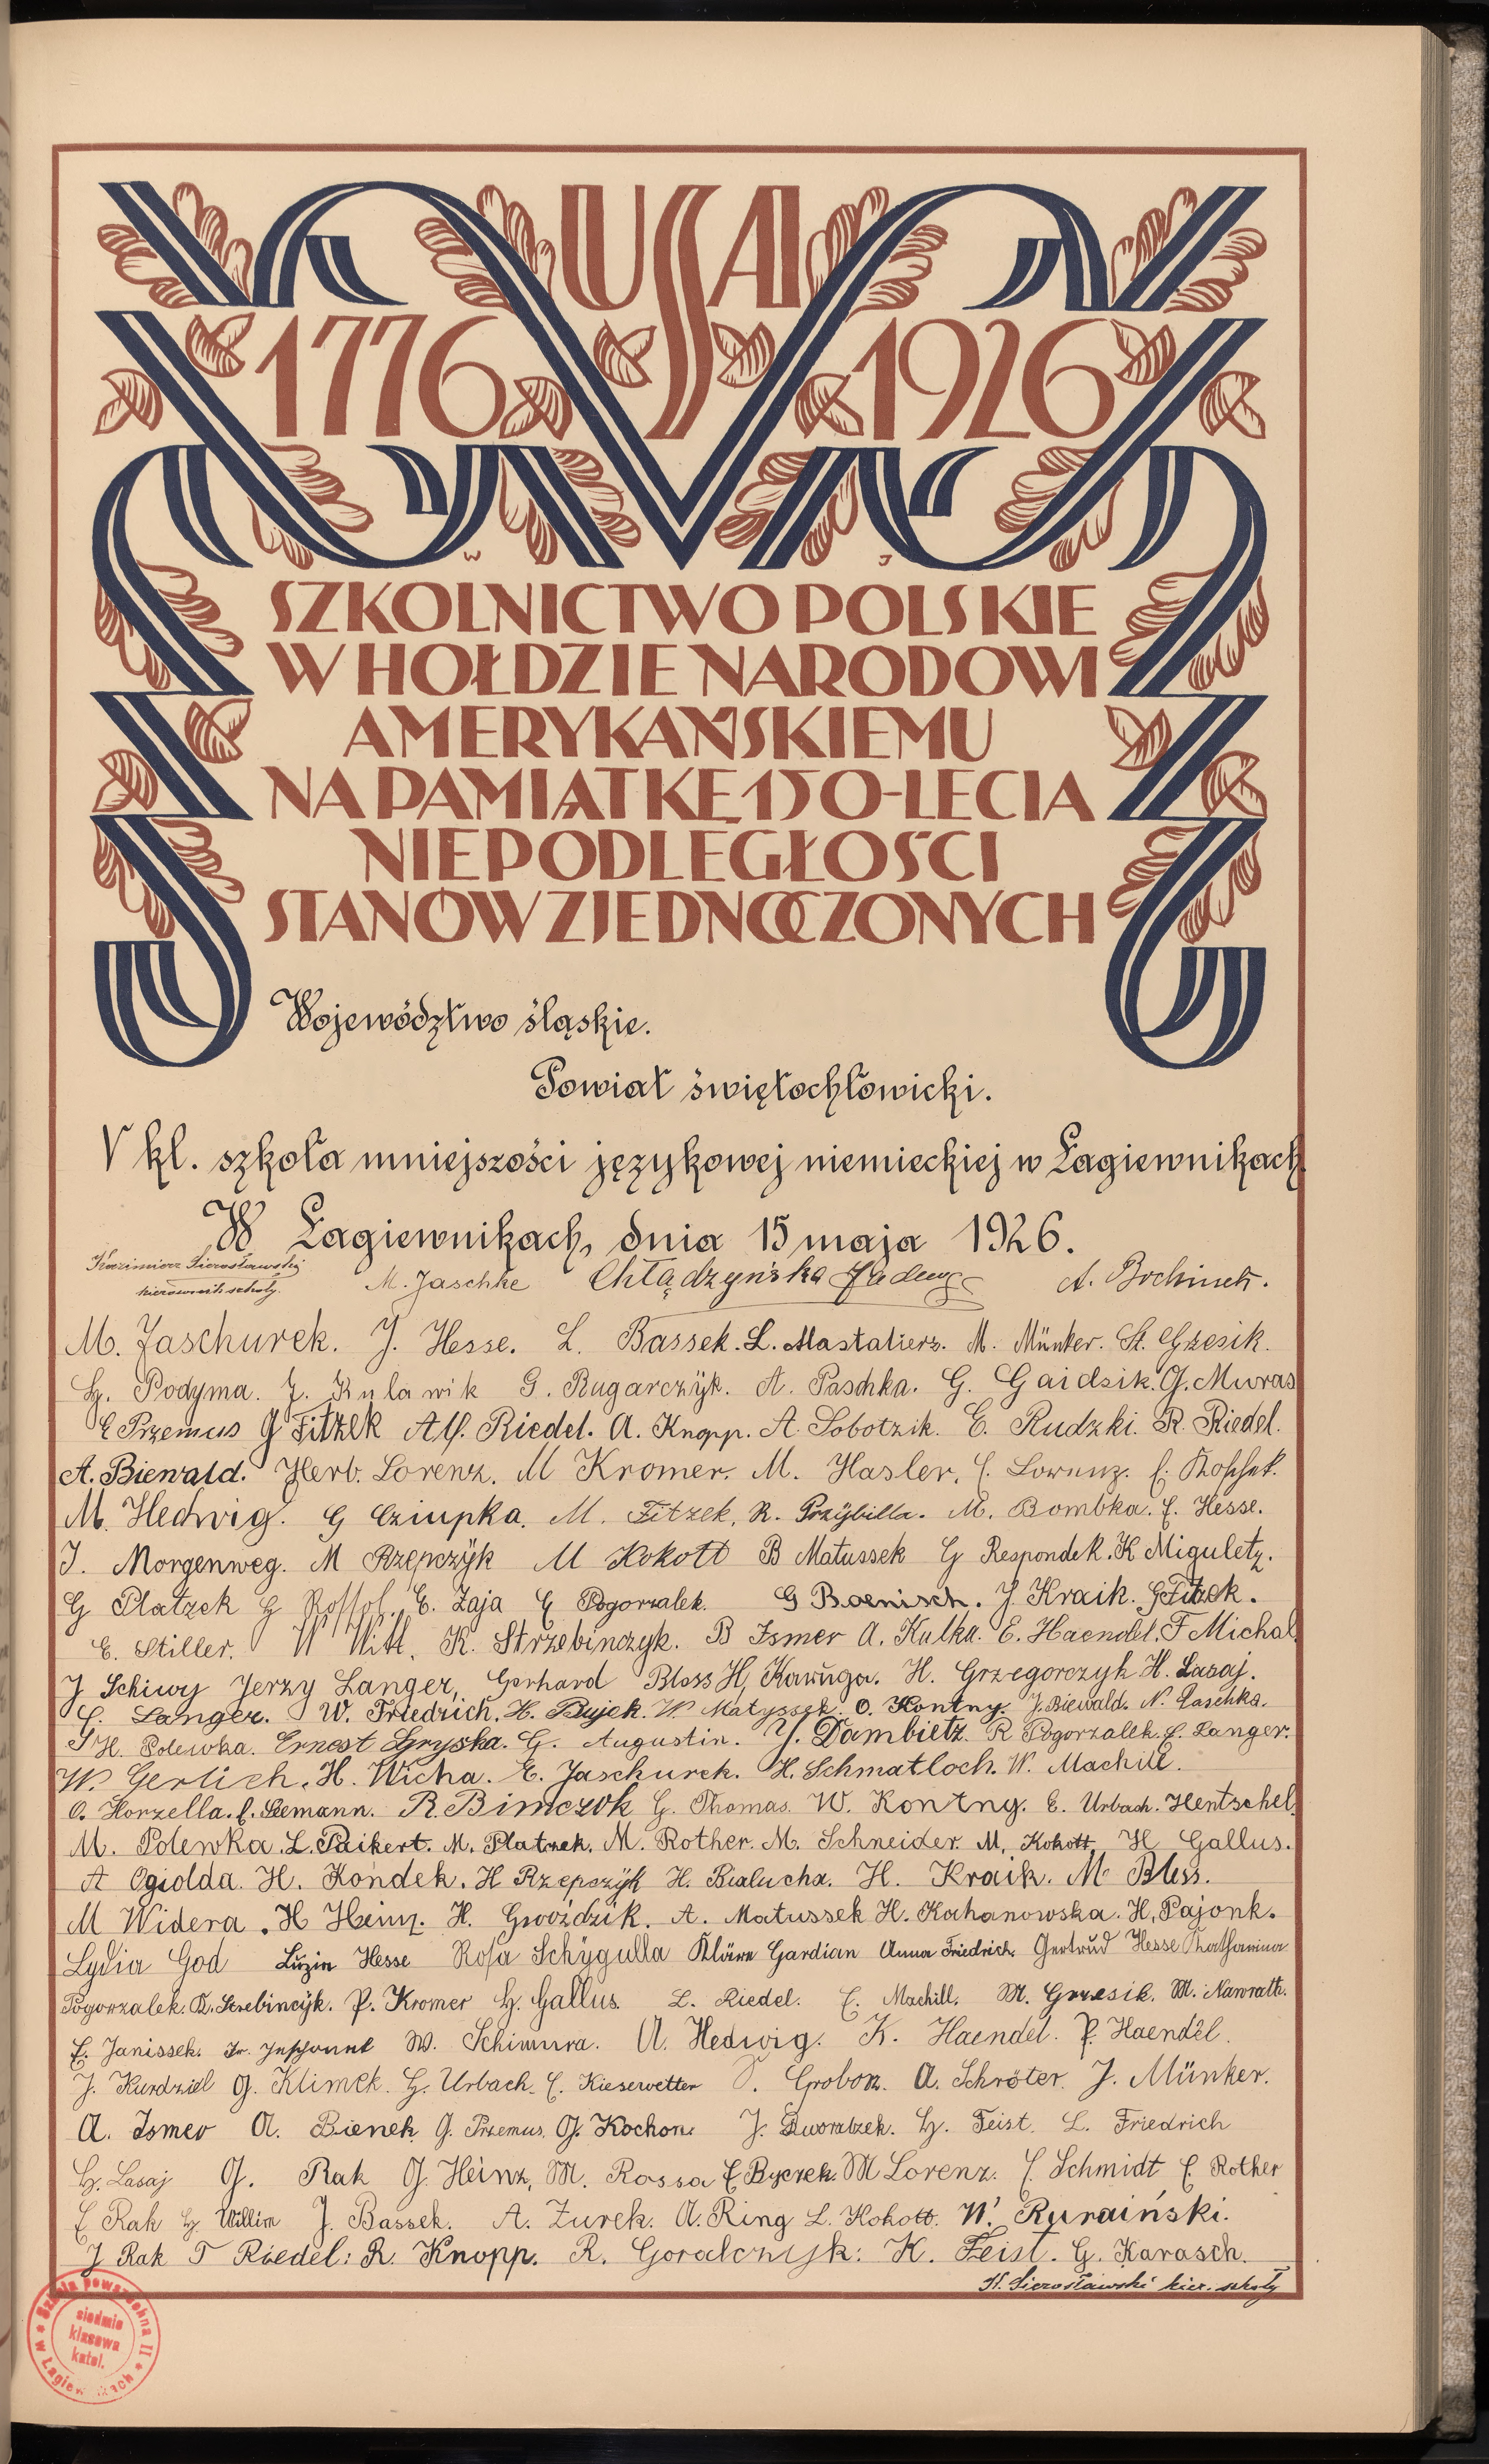 USA
1776 1926
W J
SZKOLNICTWO POLSKIE
W HOŁDZIE NARODOWI
AMERYKAŃSKIEMU
NA PAMIĄTKĘ 150-LECIA
NIEPODLEGŁOŚCI
STANÓW ZJEDNOCZONYCH
Województwo śląskie.
Powiat świętochłowicki.
V kl. szkoła mniejszości językowej niemieckiej w Łagiewnikach
W Łagiewnikach, dnia 15 maja 1926.
Kazimierz Sierosławski
kierownik szkoły.
M. Jaschke Chłądzyńska Jadwiga A. Bochinek.
M. Jaschurek. J. Hesse. L. Bassek. L. Mastalierz. M. Münker. St. Grzesik.
H. Podyma. J. Kulawik G. Rugarczÿk. A. Paschka. G. Gaidzik. G. Muras
E Przemus G Fitzek Alf. Riedel. A. Knopp. A. Sobotzik. E. Rudzki. R. Riedel.
A. Biewald. Herb. Lorenz. M Kromer. M. Hasler. E. Lorenz. E. Kossek.
M. Hedwig. G Cziupka. M. Fitzek, R. Przÿbilla. M. Bombka. E. Hesse.
J. Morgenweg. M Rzepczÿk M Kokott B Matussek G Respondek. K Miguletz.
G Platzek G Rossol. E. Zaja E Pogorzalek. G Boenisch. J. Kraik. G Fitzek.
E. Stiller. W Witt. K. Strzebinczyk. B Ismer A. Kulka. E. Haendel. F Michal.
J Schiwy Jerzy Langer, Gerhard Bloss H, Kawuga. H. Grzegorczyk H. Lasaj.
E. Langer. W. Friedrich. H. Bujek. W. Matyssek. O. Kontny. J. Biewald. N. Paschka.
H. Polewka. Ernest Gryska. G. Augustin. Y. Dambietz. R Pogorzalek. E. Langer.
W. Gerlich. H. Wicha. E. Jaschurek. H. Schmatloch. W. Machill.
O. Horzella. E. Seemann. R. Bimczok G. Thomas. W. Kontny. E. Urbach. Hentschel.
M. Polewka. L. Paikert. M. Platzek. M. Rother. M. Schneider. M. Kokott, H Gallus.
A Ogiolda. H. Kondek. H Rzepczÿk H. Bialucha. H. Kraik. M Bless.
M Widera. H Heinz. H. Gwoździk. A. Matussek H. Kahanowska. H. Pajonk.
Lydia God Luzin Hesse Rosa Schÿgulla Kläre Gardian Anna Friedrich. Gertrud Hesse Katharina
Pogorzalek. R. Strebincÿk. P. Kromer H. Gallus. L. Riedel. E. Machill. M. Grzesik. M. Nawrath.
E. Janissek. W. Schimura. A. Hedwig. K. Haendel. P. Haendel.
J. Kurdziel G. Klimek. H. Urbach. E. Kiesewetter Groborz. A. Schröter. J. Münker.
A. Ismer A. Bienek. G. Przemus. G. Kochon. J. Dworatzek. H. Feist. L. Friedrich
H. Lasaj G. Rak G. Heinz, M. Rossa E Byczek. M Lorenz. E Schmidt E. Rother
E Rak H. Willim J. Bassek. A. Zurek. A. Ring L. Kokott. W. Ruraiński.
J Rak T Riedel. R. Knopp. R. Goralczyk. K. Feist. G. Karasch.
K. Sierosławski kier. szkoły
Szkoła powszechna II
w Łagiewnikach
siedmio
klasowa
katol.